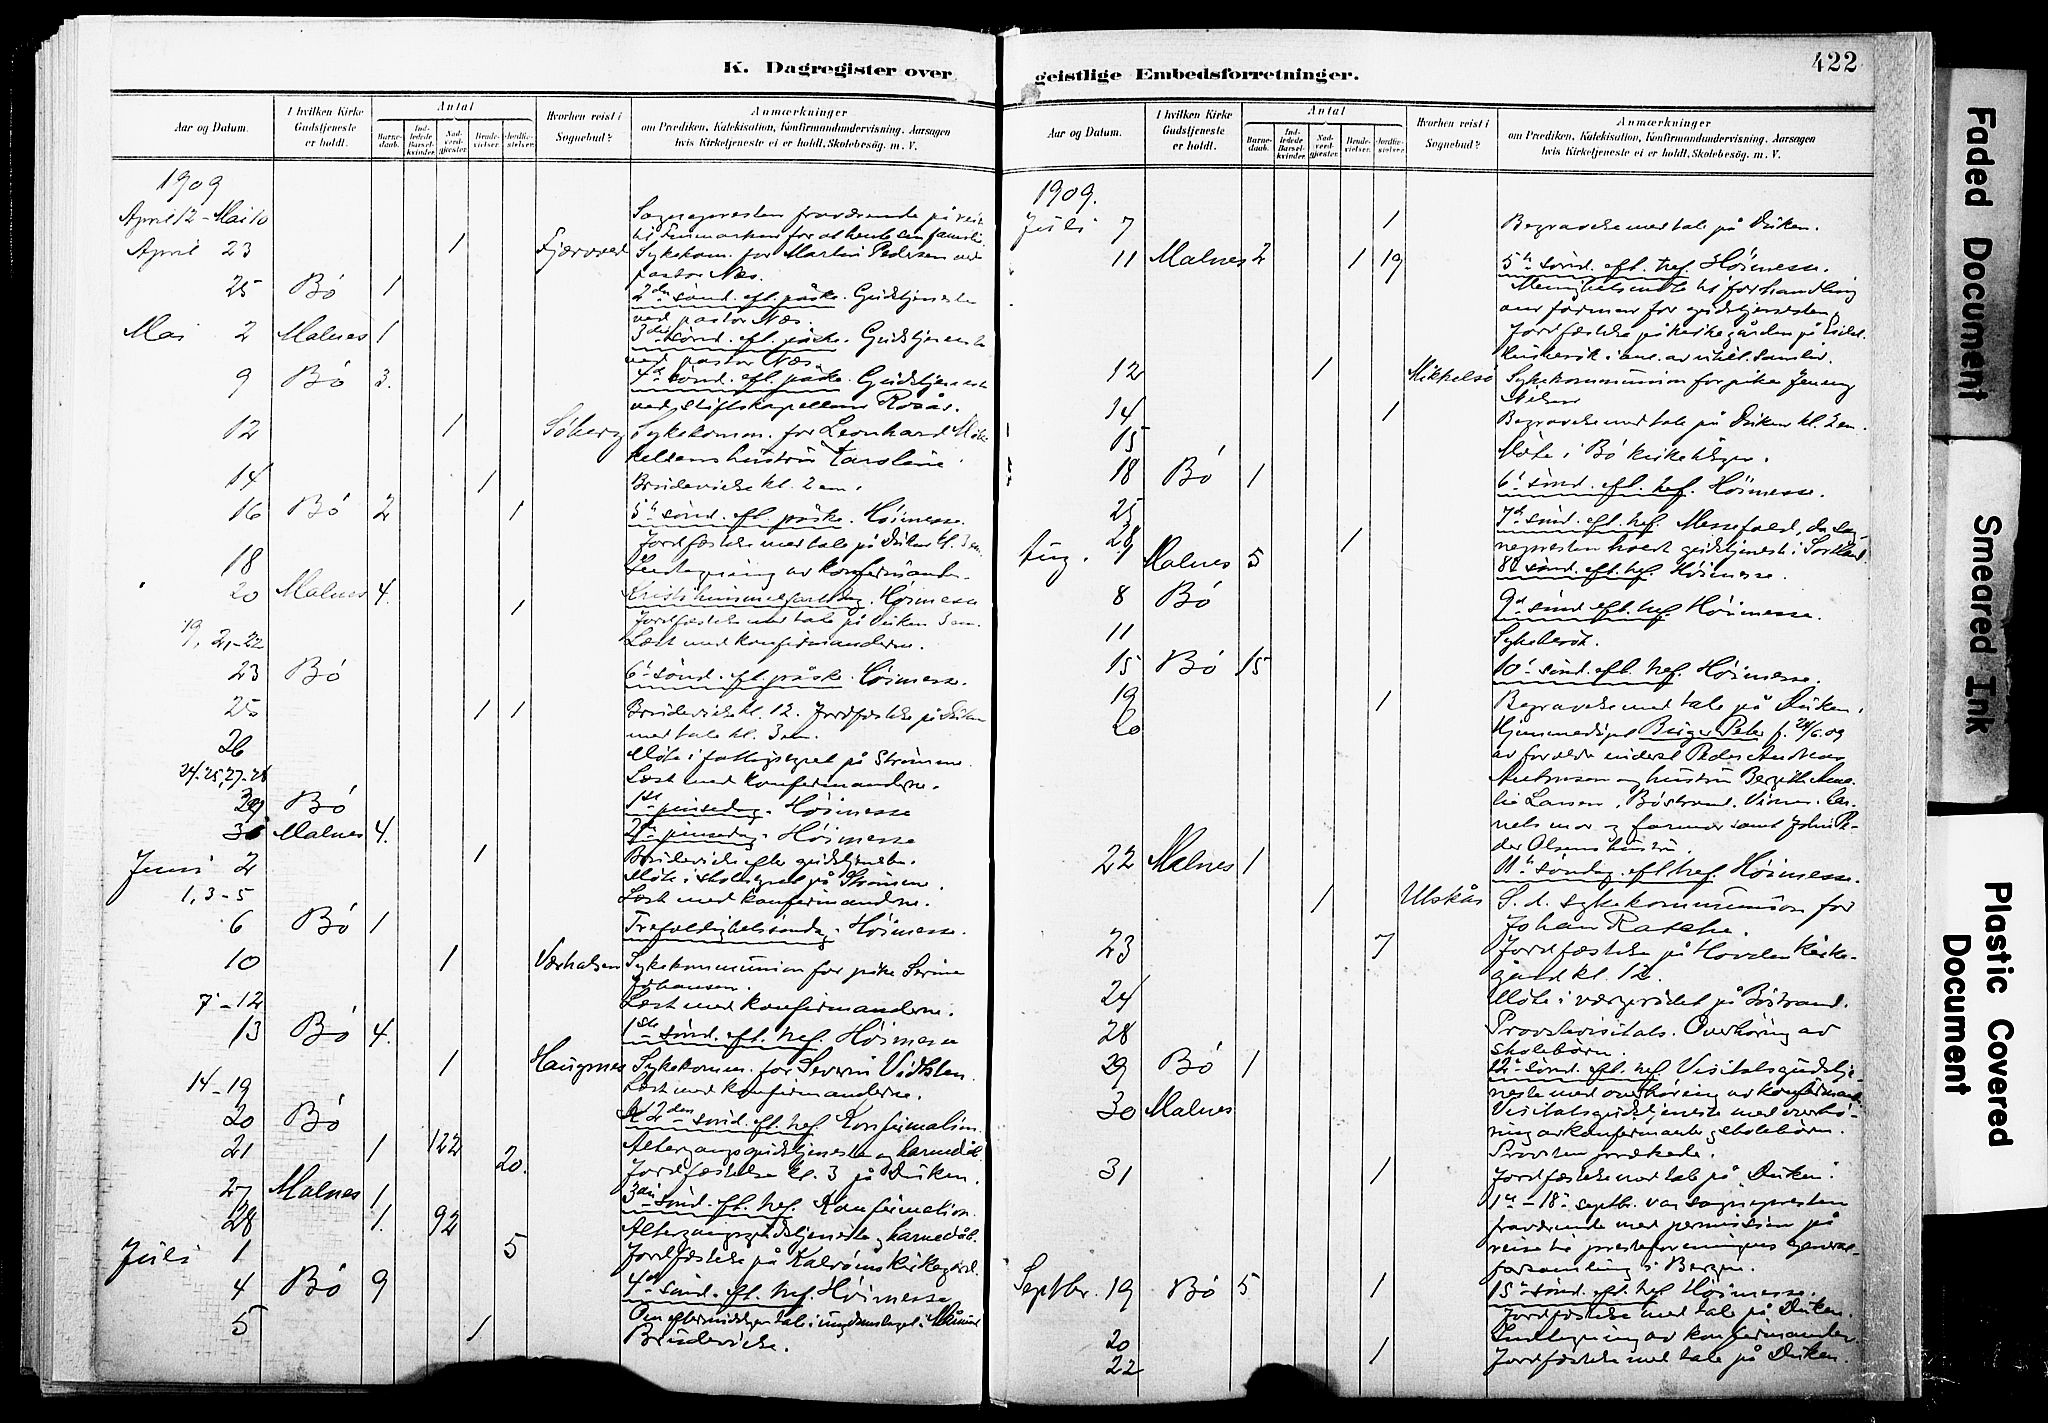 K. Dagregister over
Aar og Datum.
I hvilken Kirke Gudstjeneste er holdt.
Antal
Barnedaab.
Indledede Barselkvinder.
Nadverdgjester.
Brudevielser.
Jordfæstelser.
Hvorhen reist i Sognebud?
Anmærkninger
om Prædiken, Katekisation, Konfirmandundervisning, Aarsagen
hvis Kirketjeneste ei er holdt, Skolebesøg. m. V.
1909
April 12 - Mai 10 Sognepresten fraværende på reise
til Finmarken for at hente sin familie.
April 23 1 Fjærvoll Sykekom. for Martin Pedersen ved
pastor Næs.
25 Bö 1 2den sönd. eft. påske. Gudstjeneste
ved pastor Næs.
Mai 2 Malnes 1 3die sönd. eft. påske. Gudstjeneste
ved pastor Næs.
9 Bö 3. 4de sönd. eft. påske. Gudstjeneste
ved stiftskapellan Rosår.
12 1 Söberg Sykekomm. for Leonhard Mik
kelsens hustru Karoline.
14 1 Brudevielse kl. 2 em.
16 Bö 2 1 5te sönd. eft. påske. Höimesse.
Jordfæstelse med tale på Diken kl. 3 em.
18 Indtegning av konfirmander.
20 Malnes 4. 1 Kristi himmelfartsdag. Höimesse
Jordfæstelse med tale på Diken 3 em.
19, 21-22 Læst med konfirmanderne.
23 Bö 6te sönd. eft. påske. Höimesse.
25 1 1 Brudevielse kl. 12. Jordfæstelse på Diken
med tale kl. 3 em.
26 Möte i fattigstyret på Strømme.
24-25, 27-28 Læst med konfirmanderne.
30 Bö 1ste pinsedag. Höimesse
31 Malnes 4. 2den pinsedag. Höimesse
1 Brudevielse efter gudstjenesten.
Juni 2 Möte i skolestyret på Strømme.
1, 3-5 Læst med konfirmanderne.
6 Bö 1 Trefoldighetssöndag. Höimesse.
10 1 Verhalsen Sykekommunion for pike Serine
Johansen.
7-12 Læst med konfirmanderne.
13 Bö 4. 1ste sönd. eft. tref. Höimesse
1 Haugnes Sykekomm. for Severin Vidsten.
14-19 Læst med konfirmanderne.
20 Bö 2den sönd. eft. tref. Konfirmation.
21 1 122 20. Altergangsgudstjeneste og barnedåb.
Jordfæstelse kl. 3 på Diken.
27 Malnes 1. 3die sönd. eft. tref. Konfirmation.
28 1. 92 Altergangsgudstjeneste og barnedåb.
Juli 1 5 Jordfæstelse på Kalrøns kirkegård.
4 Bö 9 4de sönd. eft. tref. Höimesse
Om eftermiddagen tale i ungdomslaget i
5 1 Brudevielse.
422
geistlige Embedsforretninger.
Aar og Datum.
I hvilken Kirke Gudstjeneste er holdt.
Antal
Barnedaab.
Indledede Barselkvinder.
Nadverdgjester.
Brudevielser.
Jordfæstelser.
Hvorhen reist i Sognebud?
Anmærkninger
om Prædiken, Katekisation, Konfirmandundervisning, Aarsagen
hvis Kirketjeneste ei er holdt, Skolebesøg. m. V.
1909.
Juli 7 1 Begravelse med tale på Diken.
11 Malnes 2 1 19 5te sönd. eft. tref. Höimesse.
Menighetsmöte til forhandling
om former for gudstjenesten.
Jordfæstelse på kirkegården på
Husbesök i
12 1 Mikkelsö Sykekommunion for pike Jenny
Nilsen
14 1 Begravelse med tale på Diken kl. 3 em.
15 Möte i Bö kirkeværge.
18 Bö 1 6te sönd. eft. tref. Höimesse.
25 7de sönd. eft. tref. Messefald, da sog-
28 1 nepresten hvert gudstjeneste i Sortland.
Aug. 1 Malnes 5 8de sönd. eft. tref. Höimesse.
8 Bö 9de sönd. eft. tref. Höimesse.
11 Sykebesök.
15 Bö 15 10de sönd. eft. tref. Höimesse.
19 1 Begravelse med tale på Diken.
20 Hjemmedöpt Birger Peter f. 24/6.09
av forældre inderst Peder Andreas
Antonsen og hustru Bergithe Ama-
lie Larsen, Böstrand. Vidner: bar-
nets mor og farmor samt John Pe-
der Olsens hustru.
22 Malnes 1 11te söndag eft. tref. Höimesse.
1 Ulskår S. d. sykekommunion for
Johan Rasche.
23 7 Jordfæstelse på Hovden kirke-
gård kl. 12.
24 Möte i vergerådet på Böstrand.
28 Provstevisitats. Overhöring av
skolebörn.
29 Bö 1 12te sönd. eft. tref. Visitatsgudstje-
neste med overhöring av konfirmanter.
30 Malnes Visitatsgudstjeneste med overhö-
ring av konfirmanter og skolebörn.
Provsten prædikede.
31 1 Jordfæstelse med tale på Diken.
1ste - 18de septbr. var sognepresten
fraværende med permission på
reise til presteforeningens general-
forsamling i Bergen.
Septbr. 19 Bö 5 1 15de sönd. eft. tref. Höimesse.
Jordfæstelse med tale på Diken.
20 Indtegning av konfirmander.
22 1 Jordfæstelse med tale på Diken.
Faded Document
Smeared Ink
Plastic Covered
Document